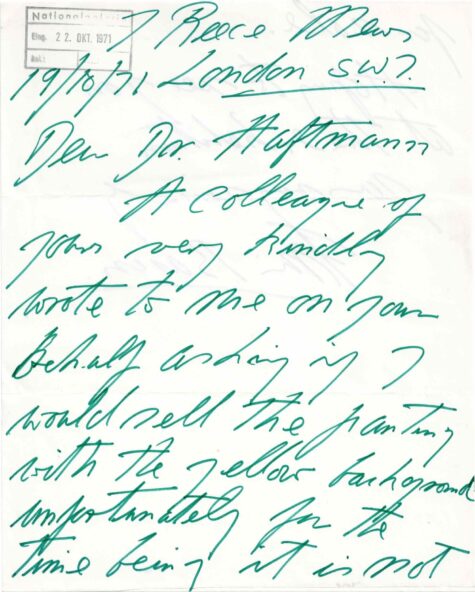 7 Reece Mews
Nationalgalerie
Eing. 22. OKT. 1971
19/10/71 London S.W.7.
Dear Dr. Haftmann
A colleague of
yours very kindly
wrote to me on your
Behalf asking if I
would sell the painting
with the yellow background
unfortunately for the
time being it is not